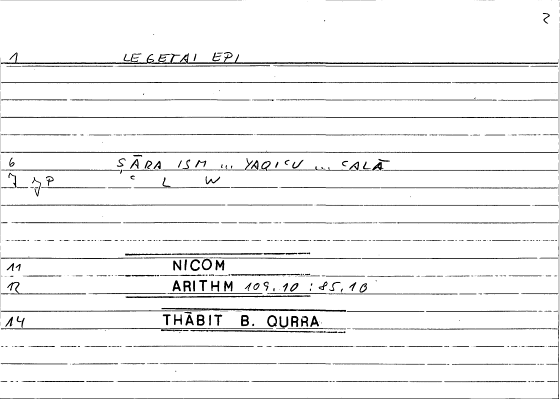 2
1 LEGETAI EPI
6 ṢĀRA ISM ... YAQICU ... CALĀ
7 JP C L W
11 NICOM
12 ARITHM 109.10 : 85.10
14 THĀBIT B. QURRA